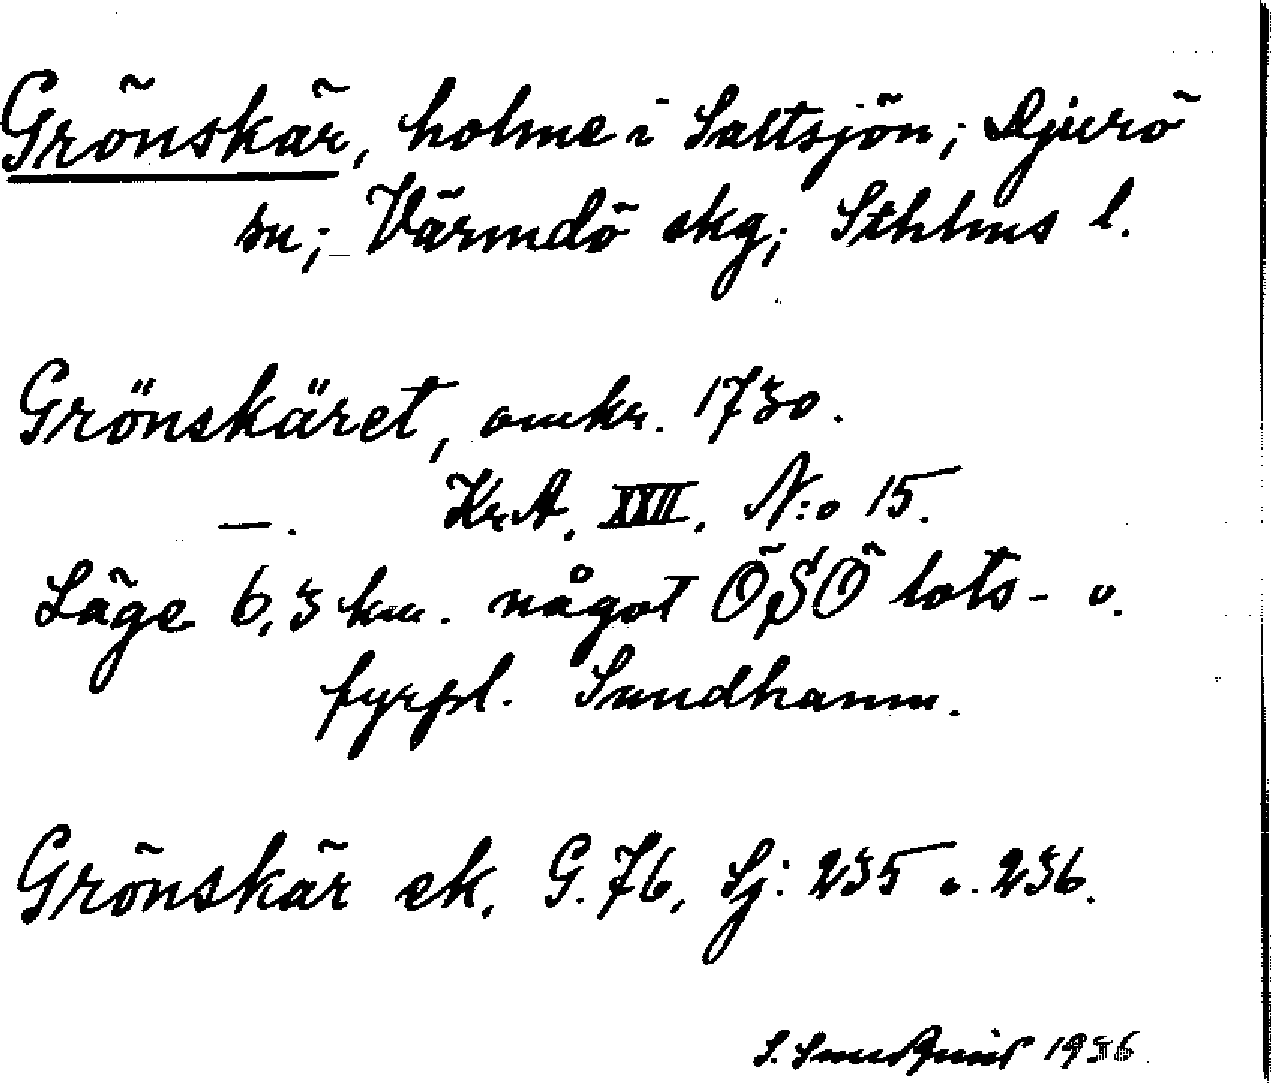 Grönskär, holme i Saltsjön; Djurö
sn; Värmdö skg; Sthlms l.
Grönskäret, omkr. 1730.
—. Kr.A. XXII. N:o 15.
Läge 6,3 km. något ÖSÖ lots- o.
fyrpl. Sandhamn.
Grönskär ek. G.76, Sj: 235 o. 236.
S. 1936